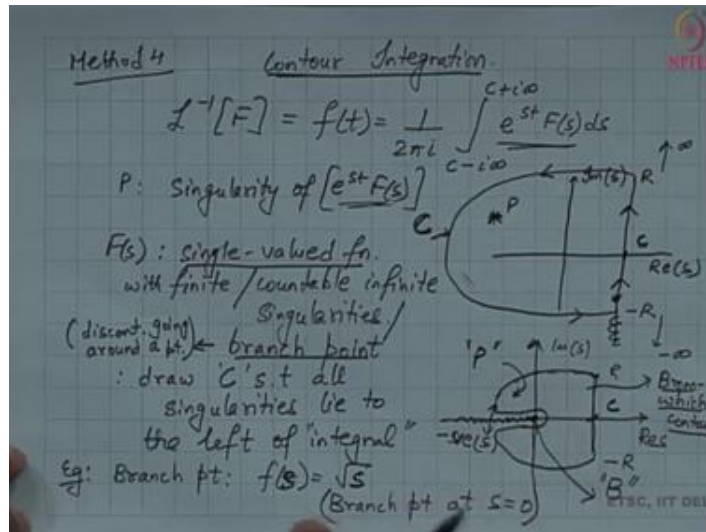 Method 4 Contour Integration.
L⁻¹[F] = f(t) = 1/2πi ∫_{c-i∞}^{c+i∞} e^{st} F(s) ds
P: Singularity of [e^{st} F(s)]
F(s): single-valued fn.
with finite/countable infinite
singularities/
(discont. going around a pt.) ← branch point
: draw 'C' s.t all
singularities lie to
the left of "integral"
Eg: Branch pt: f(s) = √s
(Branch pt at s=0)
↑ ∞
Im(s) R
P
C
c
Re(s)
-R
-∞
Im(s)
"P" R
c
-ve(s) Res
-R
"B"
which
NPTEL
ETSC, IIT DEL